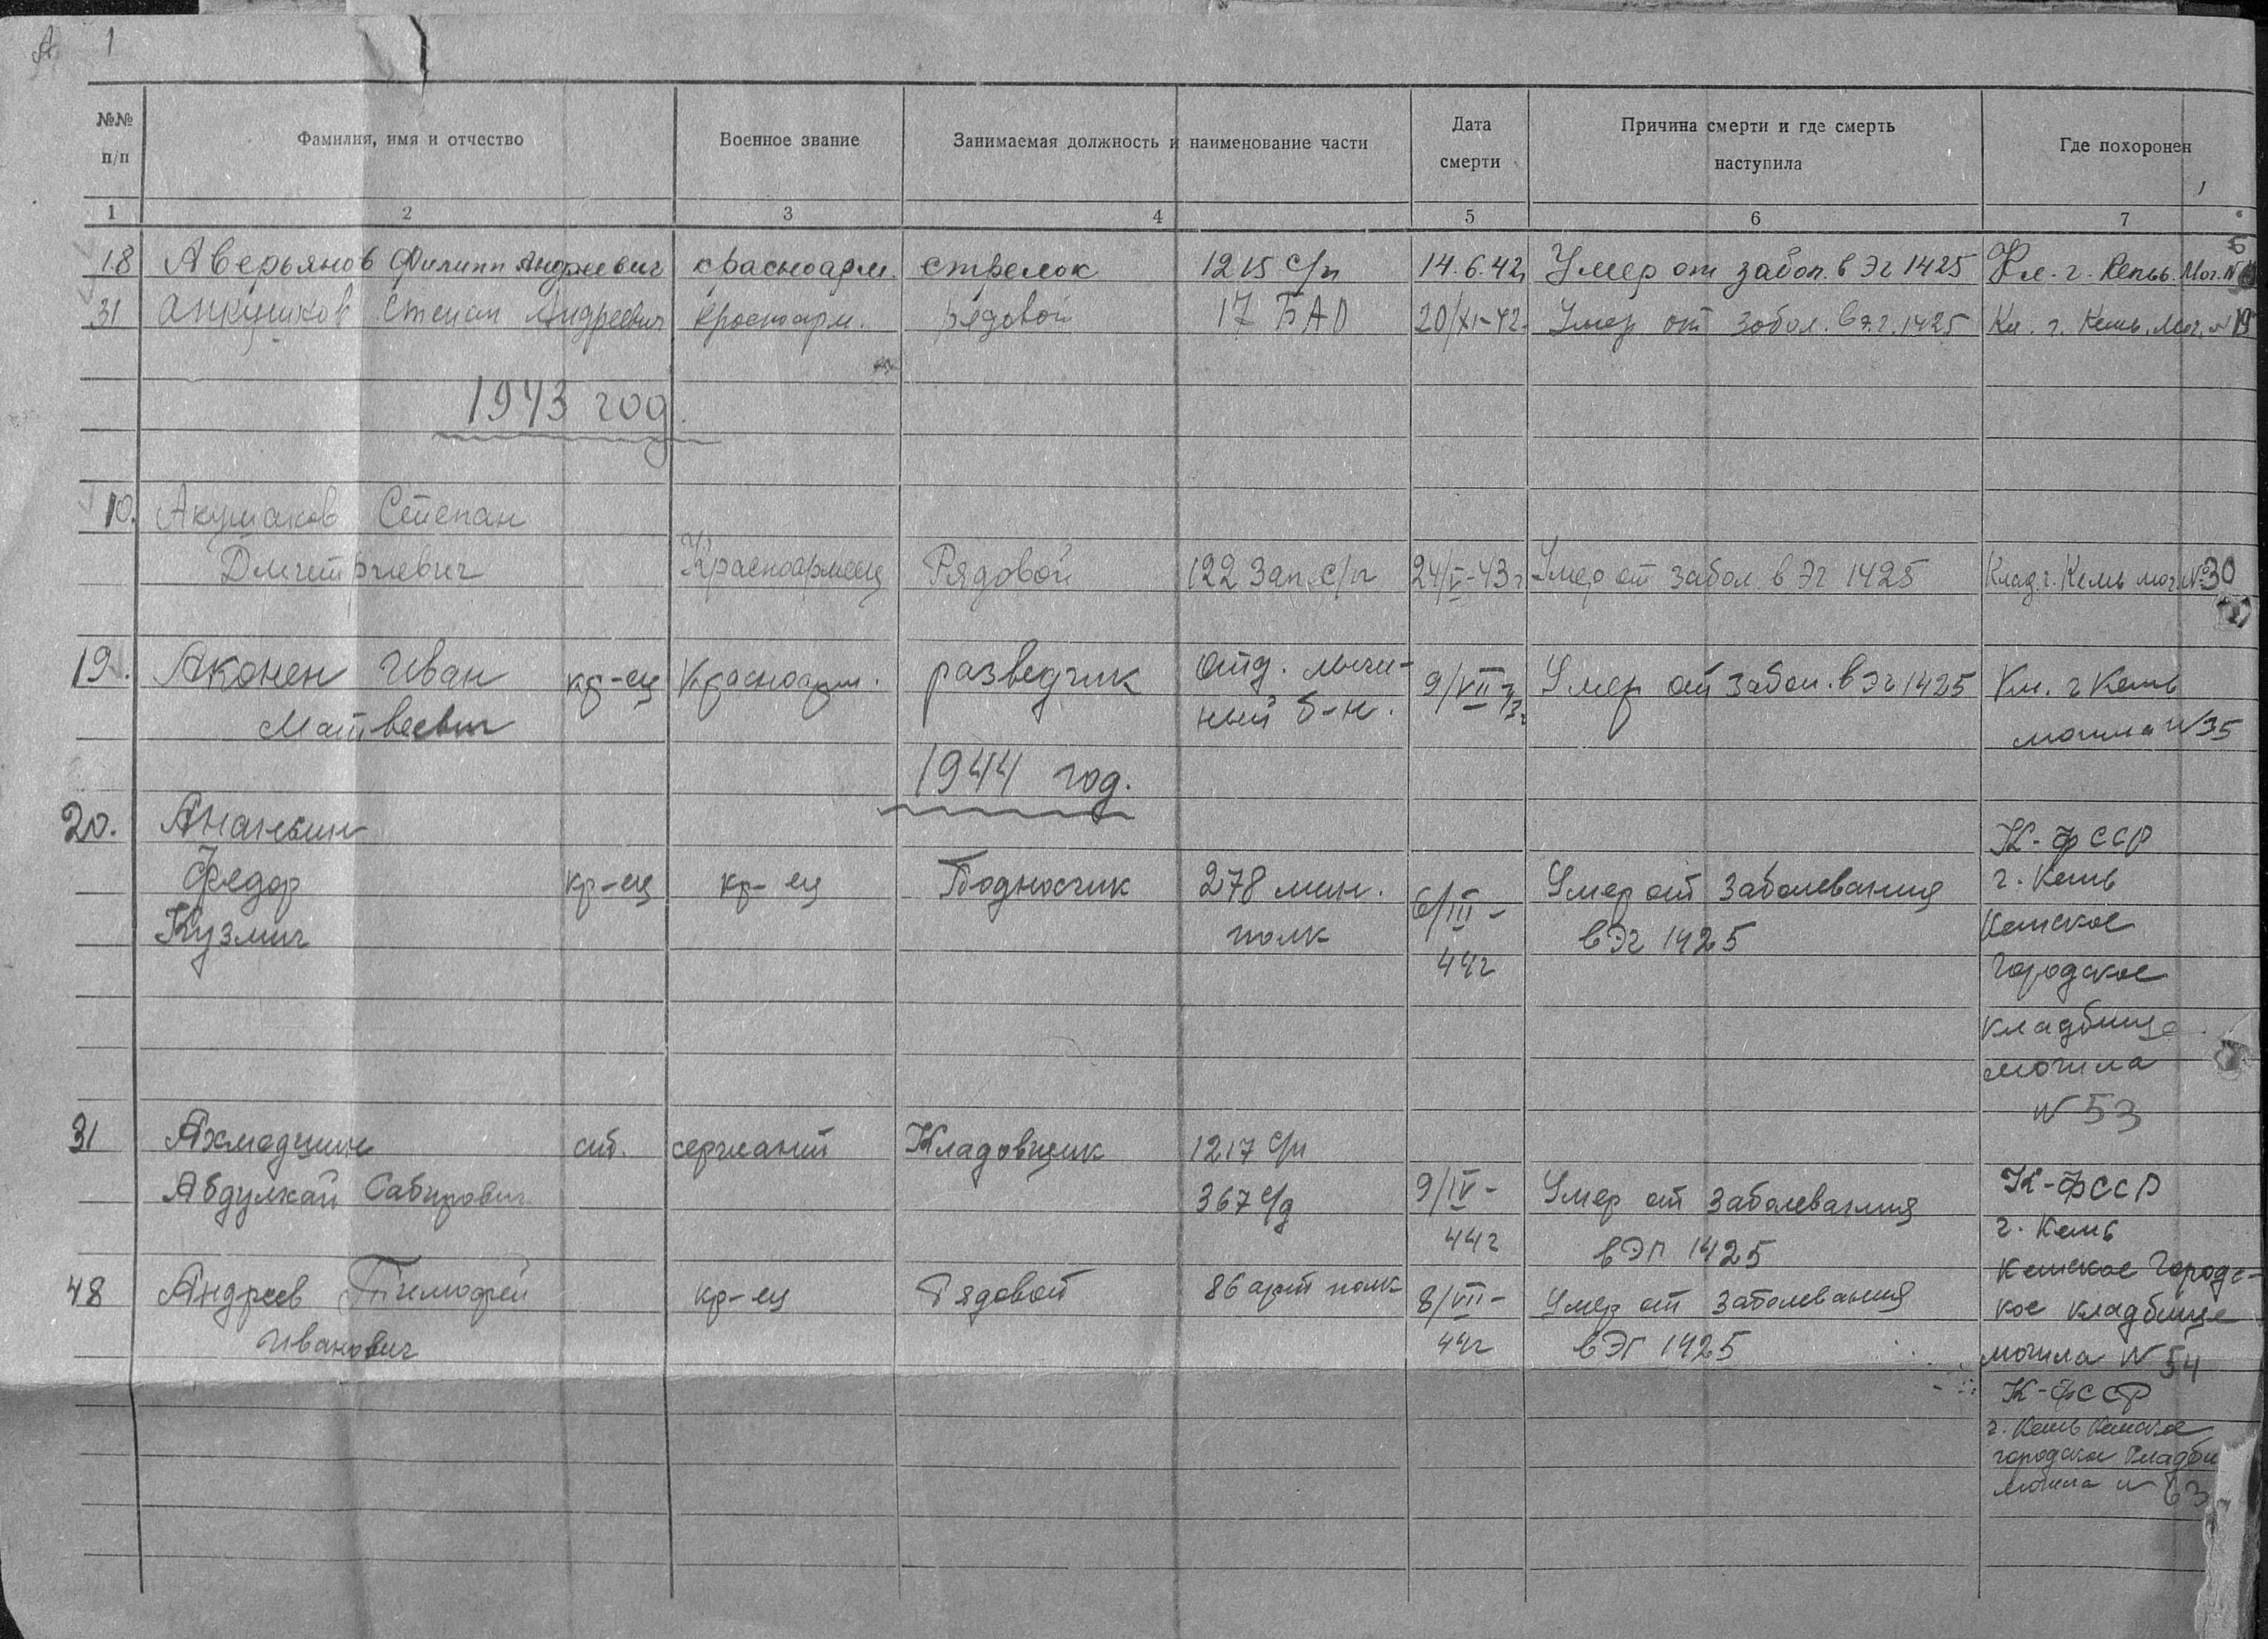 А 1
№№ п/п Фамилия, имя и отчество Военное звание Занимаемая должность и наименование части Дата смерти Причина смерти и где смерть наступила Где похоронен
1 2 3 4 5 6 7
18 Аверьянов Филипп Андреевич красноарм. стрелок 1215 с/п 14.6.42г Умер от забол. в Эг 1425 Кл. г. Кемь. Мог. №
31 Степан Андреевич красноарм. рядовой 17 БАО 20/XI-42. Умер от забол. в э.г. 1425 Кл. г. Кемь. Мог. № 19
1943 год.
10. Акушаков Степан
Дмитриевич Красноармеец Рядовой 122 Зап. с/п 24/V-43г Умер от забол. в Эг 1425 Клад. г. Кемь мог. № 30
19. Аконен Иван кр-ец Красноарм. разведчик отд. лыж- 9/VII Умер от забол. в Эг 1425 Кл. г Кемь
Матвеевич ный б-н. могила № 35
1944 год.
20. Ананьин К-ФССР
Федор кр-ец кр-ец Подносчик 278 мин. 6/III- Умер от заболевания г. Кемь
Кузмич полк 44г в Эг 1425 Кемское
Городское
кладбище
могила
№ 53
31 Ахмедшин ст. сержант Кладовщик 1217 с/п
Абдулхай Сабирович 367 с/д 9/IV- Умер от заболевания К-ФССР
44г в ЭГ 1425 г. Кемь
Кемское Городс-
48 Андреев Тимофей кр-ец Рядовой 86 арт полк 8/VII- Умер от заболевания кое кладбище
Иванович 44г в ЭГ 1425 могила № 54
К-ФССР
г. Кемь Кемское
городское кладби
могила № 63